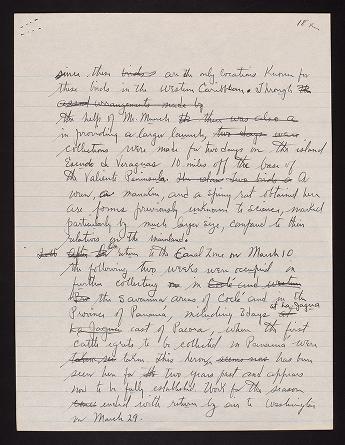 18
since these birds are the only locations known for
these birds in the Western Caribbean. Through the
arrangements made by
the help of Mr. Munch the there was also a
in providing a larger launch, two days were
collections were made for two days on the island
Escudo de Veraguas 10 miles off the base of
the Valiente Peninsula. The island two birds A
wren, a manakin, and a spiny rat obtained here
are forms previously unknown to science, marked
particularly by much larger size, compared to their
relatives on the mainland.
After return to the Canal Zone on March 10
the following two weeks were occupied in
further collecting in Coclé and western
the savanna areas of Coclé and in the
Province of Panamá, including 3 days at La Jagua
La Jagua east of Pacora, where the first
cattle egrets to be collected in Panamá were
taken. This heron, has been
seen here for two years past and appears
now to be fully established. Work for the season
ended with return by air to Washington
on March 29.